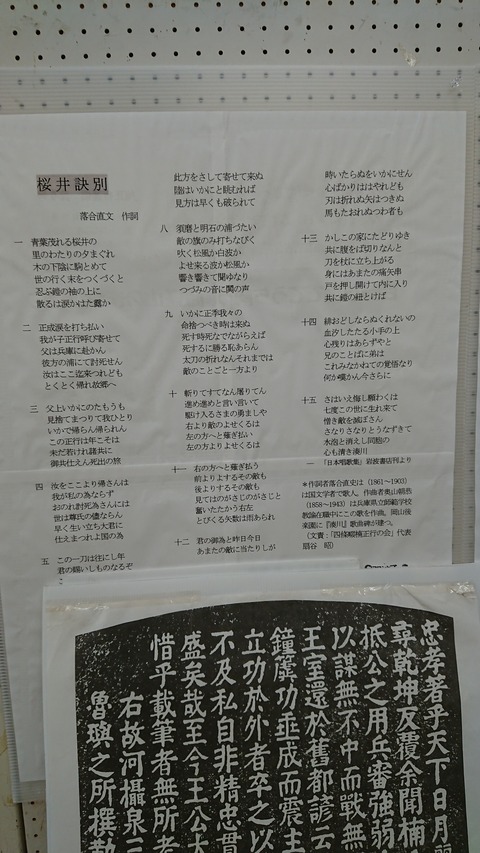 桜井訣別
落合直文　作詞
一　青葉茂れる桜井の
里のわたりの夕まぐれ
木の下陰に駒とめて
世の行く末をつくづくと
忍ぶ鎧の袖の上に
散るは涙かはた露か
二　正成涙を打ち払い
我が子正行呼び寄せて
父は兵庫に赴かん
彼方の浦にて討死せん
汝はここ迄来つれども
とくとく帰れ故郷へ
三　父上いかにのたもうも
見捨てまつりて我ひとり
いかで帰らん帰られん
この正行は年こそは
未だ若けれ諸共に
御共仕えん死出の旅
四　汝をここより帰さんは
我が私の為ならず
おのれ討死為さんには
世は尊氏の儘ならん
早く生い立ち大君に
仕えまつれよ国の為
五　この一刀は往にし年
君の賜いしものなるぞ
此方をさして寄せて来ぬ
陸はいかにと眺むれば
見方は早くも破られて
八　須磨と明石の浦づたい
敵の旗のみ打ちなびく
吹く松風か白波か
よせ来る波か松風か
響き響きて聞ゆなり
つづみの音に鬨の声
九　いかに正季我々の
命捨つべき時は来ぬ
死す時死なでながらえば
死するに勝る恥あらん
太刀の折れなんそれまでは
敵のことごと一方より
十　斬りてすてなん屠りてん
進め進めと言い言いて
駆け入るさまの勇ましや
右より敵のよせくるは
左の方へと薙ぎ払い
左の方よりよせくるは
十一　右の方へと薙ぎ払う
前よりよするその敵も
後よりするその敵も
見てはのがさじのがさじと
奮いたたかう右左
とびくる矢数は雨あられ
十二　君の御為と昨日今日
あまたの敵に当たりしが
時いたらぬをいかにせん
心ばかりははやれども
刃は折れぬ矢はつきぬ
馬もたおれぬつわ者も
十三　かしこの家にたどりゆき
共に腹をば切りなんと
刀を杖に立ち上がる
身にはあまたの痛矢串
戸を押し開けて内に入り
共に鎧の紐とけば
十四　緋おどしならぬくれないの
血汐したたる小手の上
心残りはあらずやと
兄のことばに弟は
これみなかねての覚悟なり
何か嘆かん今さらに
十五　さはいえ悔し願わくは
七度この世に生れ来て
憎き敵を滅ぼさん
さなりさなりとうなずきて
水泡と消えし同胞の
心も清き湊川
―　「日本唱歌集」岩波書店刊より
＊作詞者落合直史は（1861～1903）
は国文学者で歌人。作曲者奥山朝恭
（1858～1943）は兵庫県立師範学校
教諭在職中にこの歌を作曲。岡山後
楽園に『湊川』歌曲碑が建つ。
（文責：「四條畷楠正行の会」代表
扇谷　昭）
忠孝著乎天下日月
乾坤反覆余聞楠
抵公之用兵審強弱
以謀無不中而戰無
王室還於舊都諺云
鐘簴功垂成而震主
立功於外者卒之以
不及私自非精忠
盛矣哉至今王公大
惜乎載筆者無所考
右故河攝泉三
魯璵之所撰勒